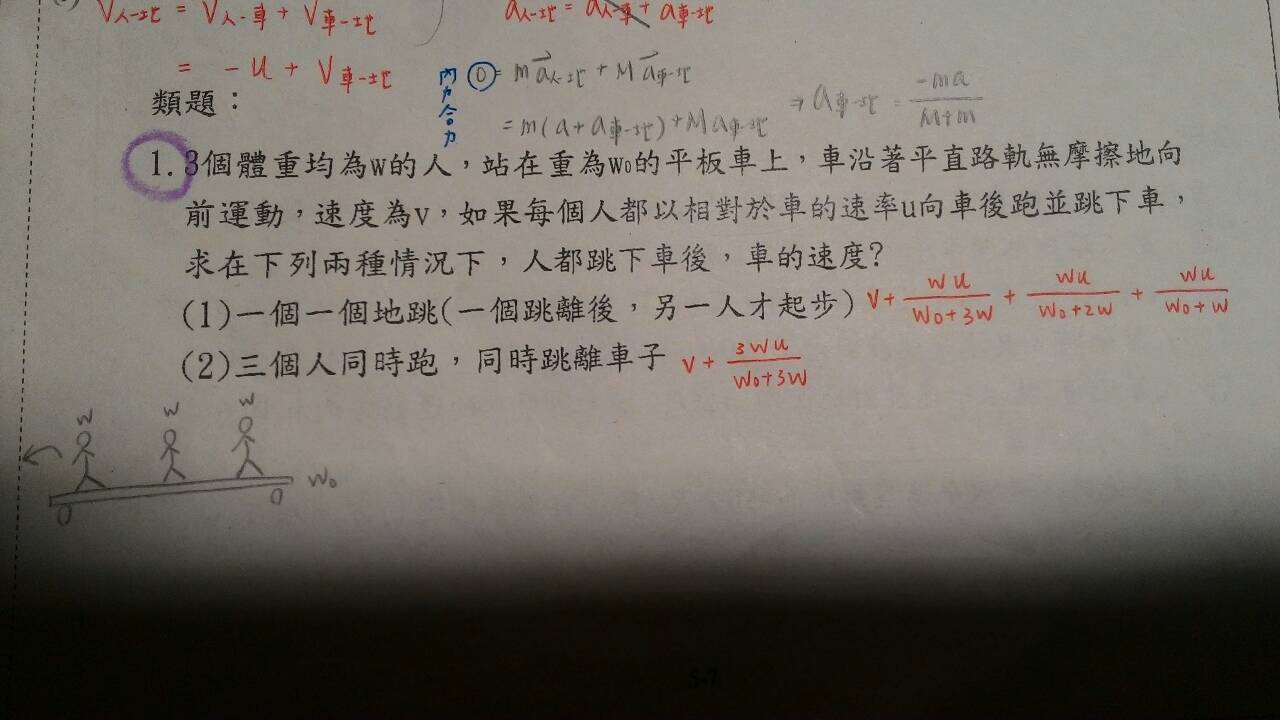 V人-地 = V人-車 + V車-地
a人-地 = a人-車 + a車-地
= -u + V車-地
內力合力 0 = ma人-地 + Ma車-地
= m(a + a車-地) + Ma車-地 ⇒ a車-地 = -ma / M+m
類題：
1. 3個體重均為w的人，站在重為w₀的平板車上，車沿著平直路軌無摩擦地向
前運動，速度為v，如果每個人都以相對於車的速率u向車後跑並跳下車，
求在下列兩種情況下，人都跳下車後，車的速度?
(1)一個一個地跳(一個跳離後，另一人才起步) V + wu / w₀+3w + wu / w₀+2w + wu / w₀+w
(2)三個人同時跑，同時跳離車子 V + 3wu / w₀+3w
w w w
w₀